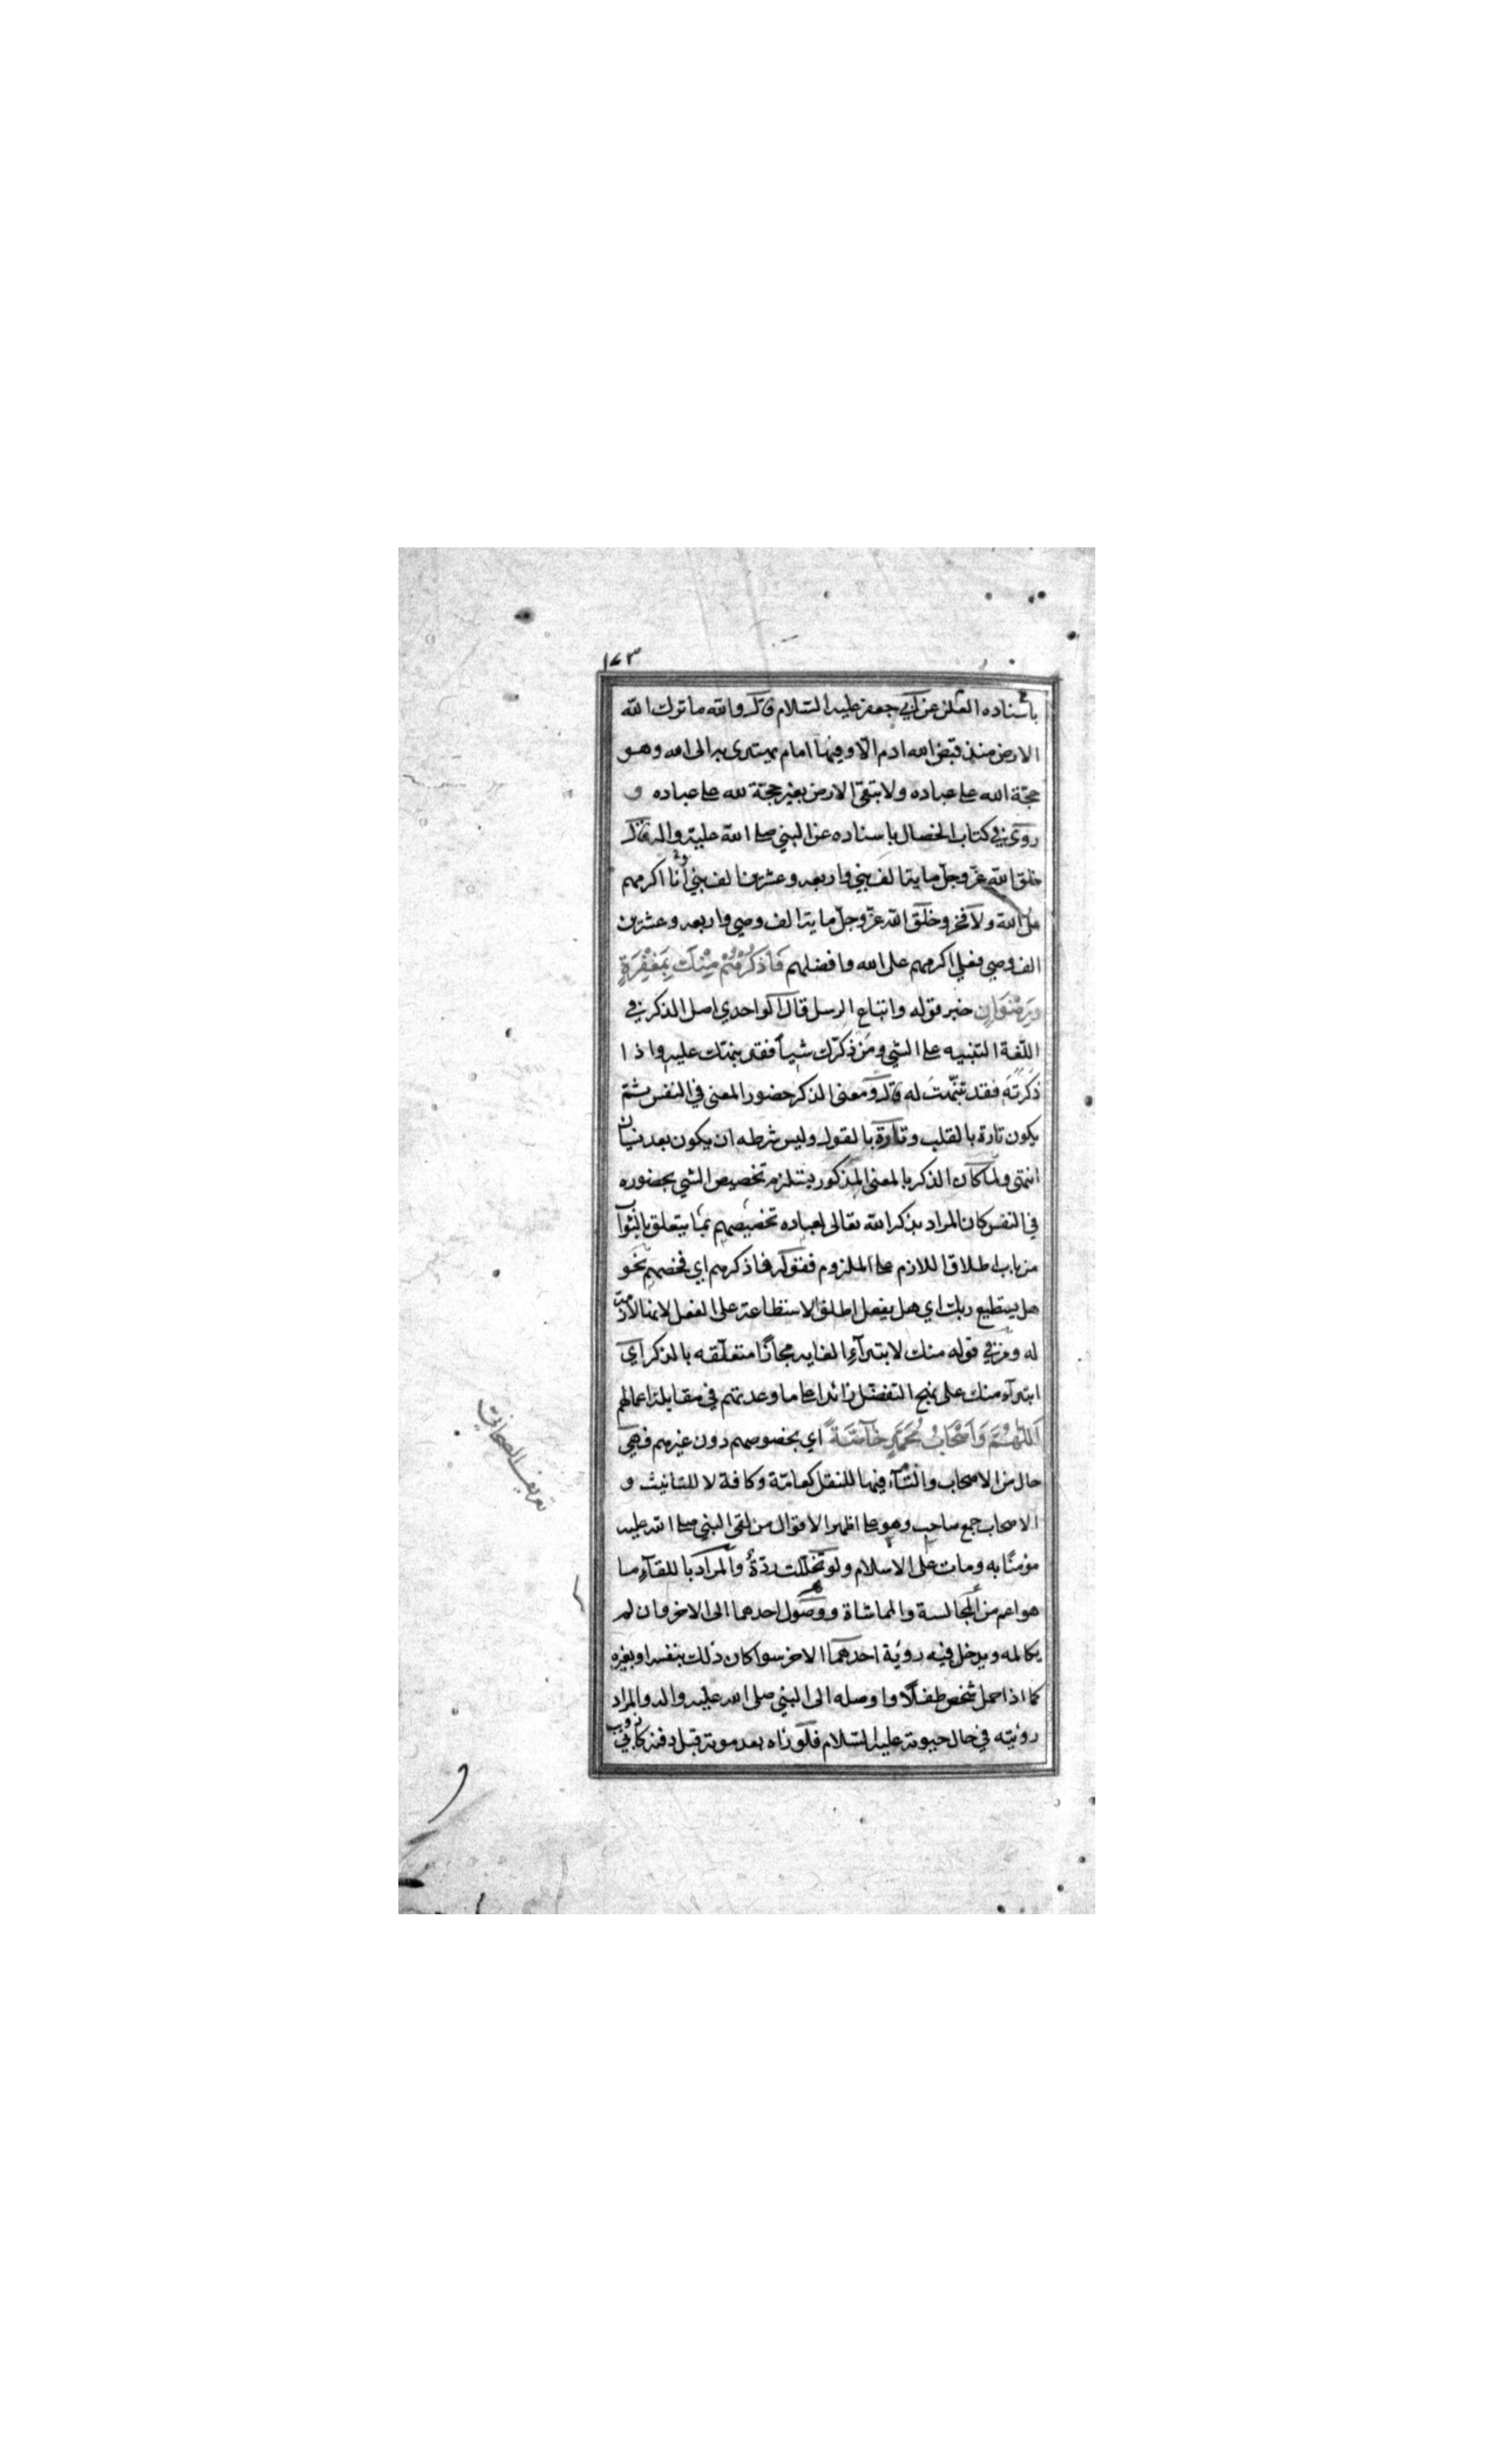 ١٧٣
باسناده الثمالي عن ابي جعفر عليه السلام قال والله ما ترك الله
الارض منذ قبض الله ادم الا وفيها امام يهتدى به الى الله وهو
حجة الله على عباده ولا تبقى الارض بغير حجة لله على عباده و
روى في كتاب الخصال باسناده عن النبي صلى الله عليه واله قال
خلق الله عز وجل ماية الف نبي واربعه وعشرين الف نبي وانا اكرمهم
على الله ولا فخر وخلق الله عز وجل ماية الف وصي واربعه وعشرين
الف وصي فعلي اكرمهم على الله وافضلهم فَاذْكُرْهُمْ مِنْكَ بِمَغْفِرَةٍ
وَرِضْوَانٍ خبر قوله واتباع الرسل قال الواحدي اصل الذكر في
اللغة التنبيه على الشي ومن ذكرك شيأ فقد نبهك عليه واذا
ذكرته فقد تنبهت له قال ومعنى الذكر حضور المعنى في النفس ثم
يكون تارة بالقلب وتارة بالقول وليس شرطه ان يكون بعد نسيان
انتهى ولما كان الذكر بالمعنى المذكور يستلزم تخصيص الشي بحضوره
في النفس كان المراد بذكر الله تعالى لعباده تخصيصهم بما يتعلق بالثواب
من باب اطلاق اللازم على الملزوم فقوله فاذكرهم اي فخصهم نحو
هل يستطيع ربك اي هل يفعل اطلق الاستطاعة على الفعل لانها لازمة
له ومن في قوله منك لابتداء الغايه مجازا متعلقه بالذكر اي
ابتداء منك على نهج التفضل زائدا على ما وعدتهم في مقابلة اعمالهم
اَللّٰهُمَّ وَاَصْحَابُ مُحَمَّدٍ خَاصَّةً اي بخصوصهم دون غيرهم فهي
حال من الاصحاب والتاء فيها للنقل كعامة وكافة لا للتانيث و
الاصحاب جمع صاحب وهو على اظهر الاقوال من لقى النبي صلى الله عليه
مؤمنا به ومات على الاسلام ولو تخللت ردة والمراد باللقاء ما
هو اعم من المجالسة والمماشاة ووصول احدهما الى الاخر وان لم
يكالمه ويدخل فيه رؤية احدهما الاخر سوا كان ذلك بنفسه او بغيره
كما اذا حمل شخص طفلا واوصله الى النبي صلى الله عليه واله والمراد
رؤيته في حال حيوته عليه السلام فلو راه بعد موته قبل دفنه كابي ذويب
تعريف الصحابي